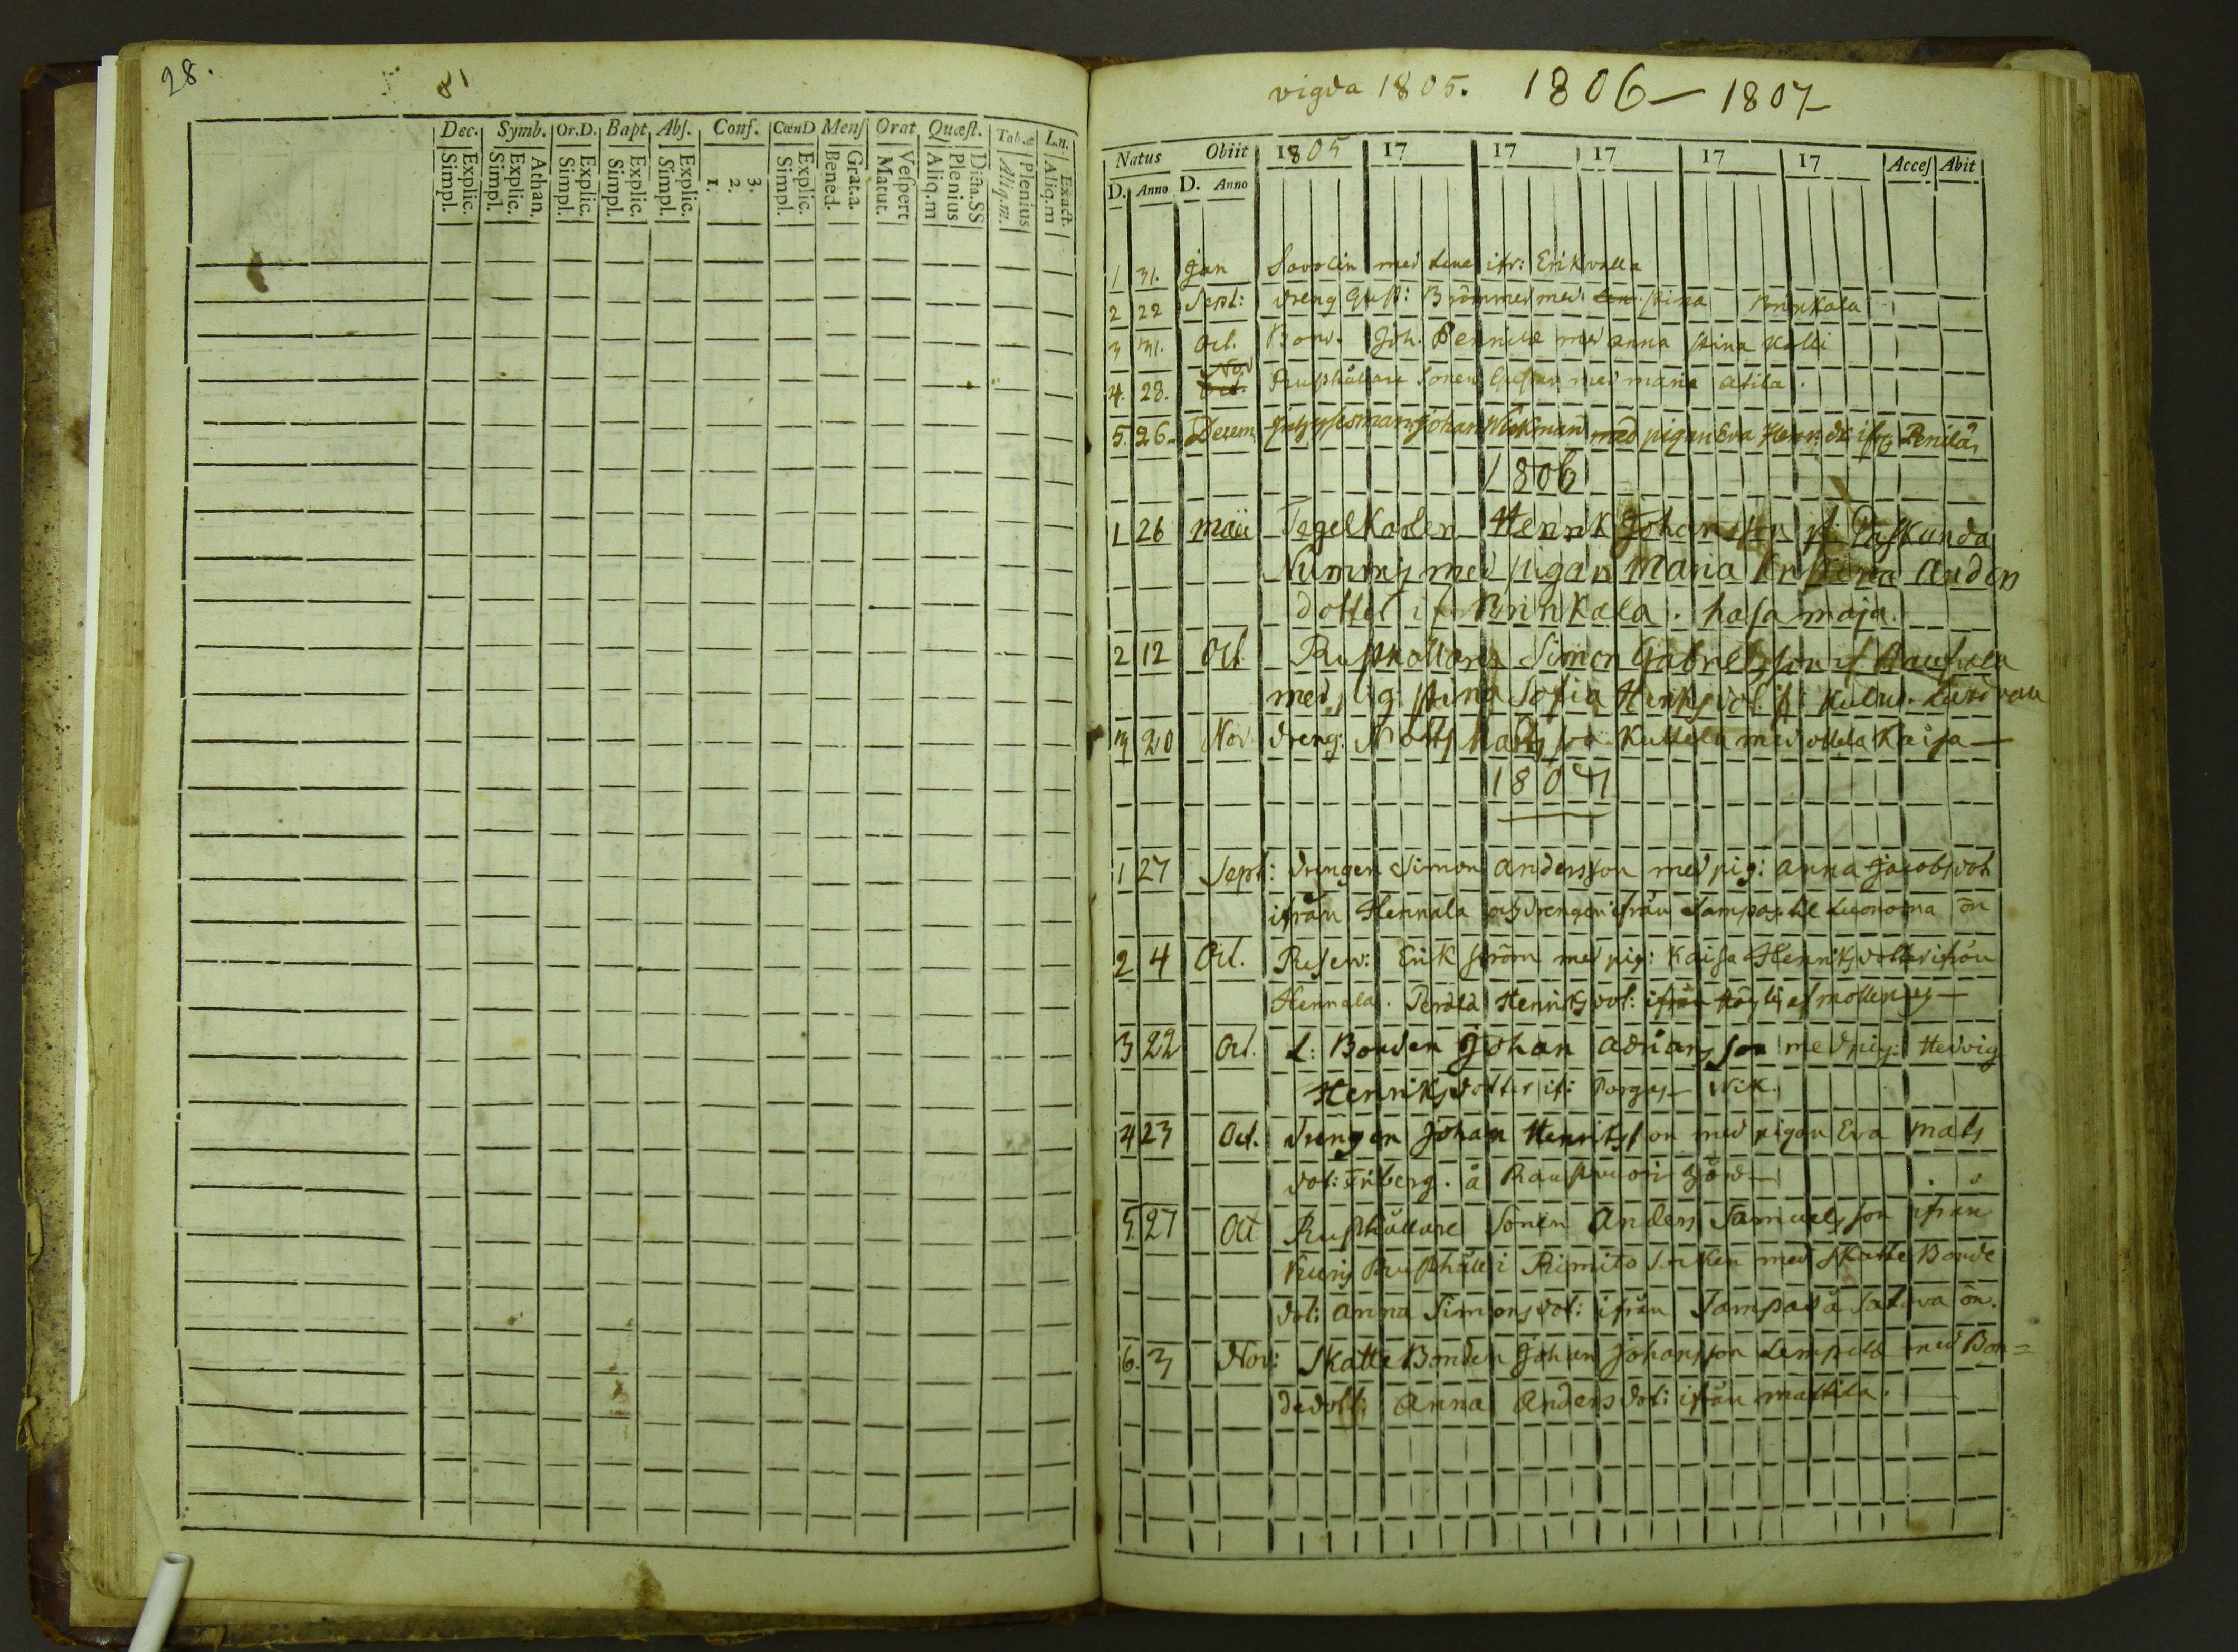 28.
81
Dec. Symb. Or.D. Bapt. Abſ. Conf. CœnD Menſ Orat Quæſt. Tab.æ L.n.
Explic. Simpl. Athan. Explic. Simpl. Explic. Simpl. Explic. Simpl. Explic. Simpl. 3. 2. 1. Explic. Simpl. Grat.a. Bened. Veſpert Matut. Dicta.SS Plenius Aliq.m Plenius Aliq.m. Exact. Aliq.m
vigda 1805. 1806 — 1807
Natus Obiit 1805 17 17 17 17 17 Acceſ Abit
D. Anno D. Anno
1 31. Jan Savolin med Lena ifr: Erikvalla
2 22 Sept: dreng Gust: Brömmer med stina Brinkala
3 31. Oct. Bond. Joh. Pennilä med anna stina Kalli
4. 28. Nov Rusthållare Sonen Gustav med maria atila.
5. 26 Decem Johan Wickman med pigan Eva Henr: dr ifrå Penilä
1806
1 26 maii Tegelkarlen Henrik Johansson if: Paskunda
Nummis med pigan Maria Anders
dotter if Brinkala. hasa maja.
2 12 Oct Rusthållaren Simon Gabrielsson if.
med pig: stina Sofia Henrksdot. if:
3 20 Nov dreng: Matts Mattsson Kuttela med Kaisa —
1807
1 27 Sept: drengen Simon andersson med pig: anna Jacobsdot
ifrån Hennala och drengen ifrån Sampas til Luonoma ön
2 4 Oct. Reserv: Erik ström med pig: Kaisa Henriksdotter ifrån
Hennala. Perälä Henriksdot:
3 22 Oct. L: Bonden Johan adriansson med pig: Hedvig
Henriksdotter if: Porgas Wik.
4 23 Oct. Drengen Johan Henriksson med pigan Eva mats
dot: Friberg. å Rauhvuori gård —
5 27 Oct Rusthållare Sonen Anders Samuelsson ifrån
Kuris Rusthåll i Rimito Socken med Skatte Bonde
dot: anna Simonsdot: ifrån Tampas å Satava ön.
6. 3 Nov: Skatte Bonden Johan Johansson Lempilä med Bon=
dedott: Anna Andersdot: ifrån mattila.